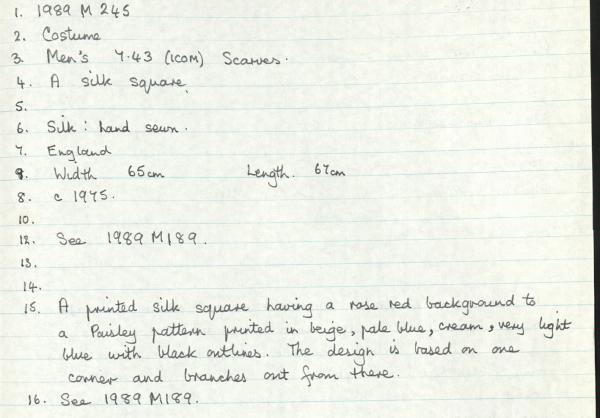 1. 1989 M 245
2. Costume
3. Men's 7.43 (ICOM) Scarves.
4. A silk square.
5.
6. Silk : hand sewn.
7. England
9. Width 65cm Length. 67cm
8. c 1975.
10.
12. See 1989 M189.
13.
14.
15. A printed silk square having a rose red background to
a Paisley pattern printed in beige, pale blue, cream, very light
blue with black outlines. The design is based on one
corner and branches out from there.
16. See 1989 M189.